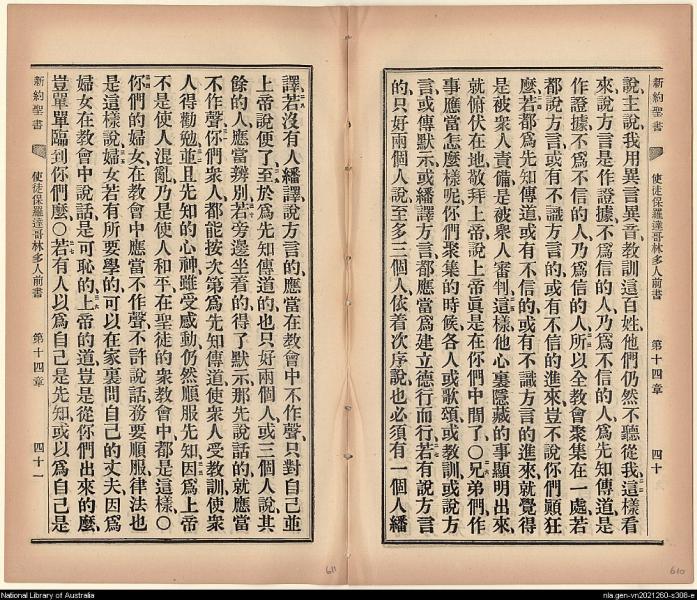 新約聖書
使徒保羅達哥林多人前書
第十四章
四十
說、主說、我用異言異音教訓這百姓、他們仍然不聽從我、這樣看
來說方言是作證據不爲信的人、乃爲不信的人、爲先知傳道、是
作證據不爲不信的人、乃爲信的人、所以全教會聚集在一處、若
都說方言、或有不識方言的、或有不信的進來、豈不說你們顚狂
麼、若都爲先知傳道、或有不信的、或有不識方言的進來、就覺得
是被衆人責備、是被衆人審判、這樣他心裏隱藏的事顯明出來、
就俯伏在地敬拜上帝、說上帝眞是在你們中間了、○兄弟們、作
事應當怎麼樣呢、你們聚集的時候、各人或歌頌、或教訓、或說方
言、或傳默示、或繙譯方言、都應當爲建立德行而行、若有說方言
的、只好兩個人說、至多三個人、依着次序說、也必須有一個人繙
譯、若沒有人繙譯說方言的、應當在教會中不作聲、只對自己並
上帝說便了、至於爲先知傳道的、也只好兩個人、或三個人說、其
餘的人應當辨別、若旁邊坐着的得了默示、那先說話的就應當
不作聲、你們衆人都能按次第爲先知傳道、使衆人受教訓、使衆
人得勸勉、並且先知的心神、雖受感動、仍然順服先知、因爲上帝
不是使人混亂、乃是使人和平、在聖徒的衆教會中都是這樣、○
你們的婦女在教會中應當不作聲、不許說話、務要順服、律法也
是這樣說、婦女若有所要學的、可以在家裏問自己的丈夫、因爲
婦女在教會中說話、是可恥的、上帝的道豈是從你們出來的麼、
豈單單臨到你們麼、○若有人以爲自己是先知、或以爲自己是
新約聖書
使徒保羅達哥林多人前書
第十四章
四十一
611
610
National Library of Australia
nla.gen-vn2021260-s308-e